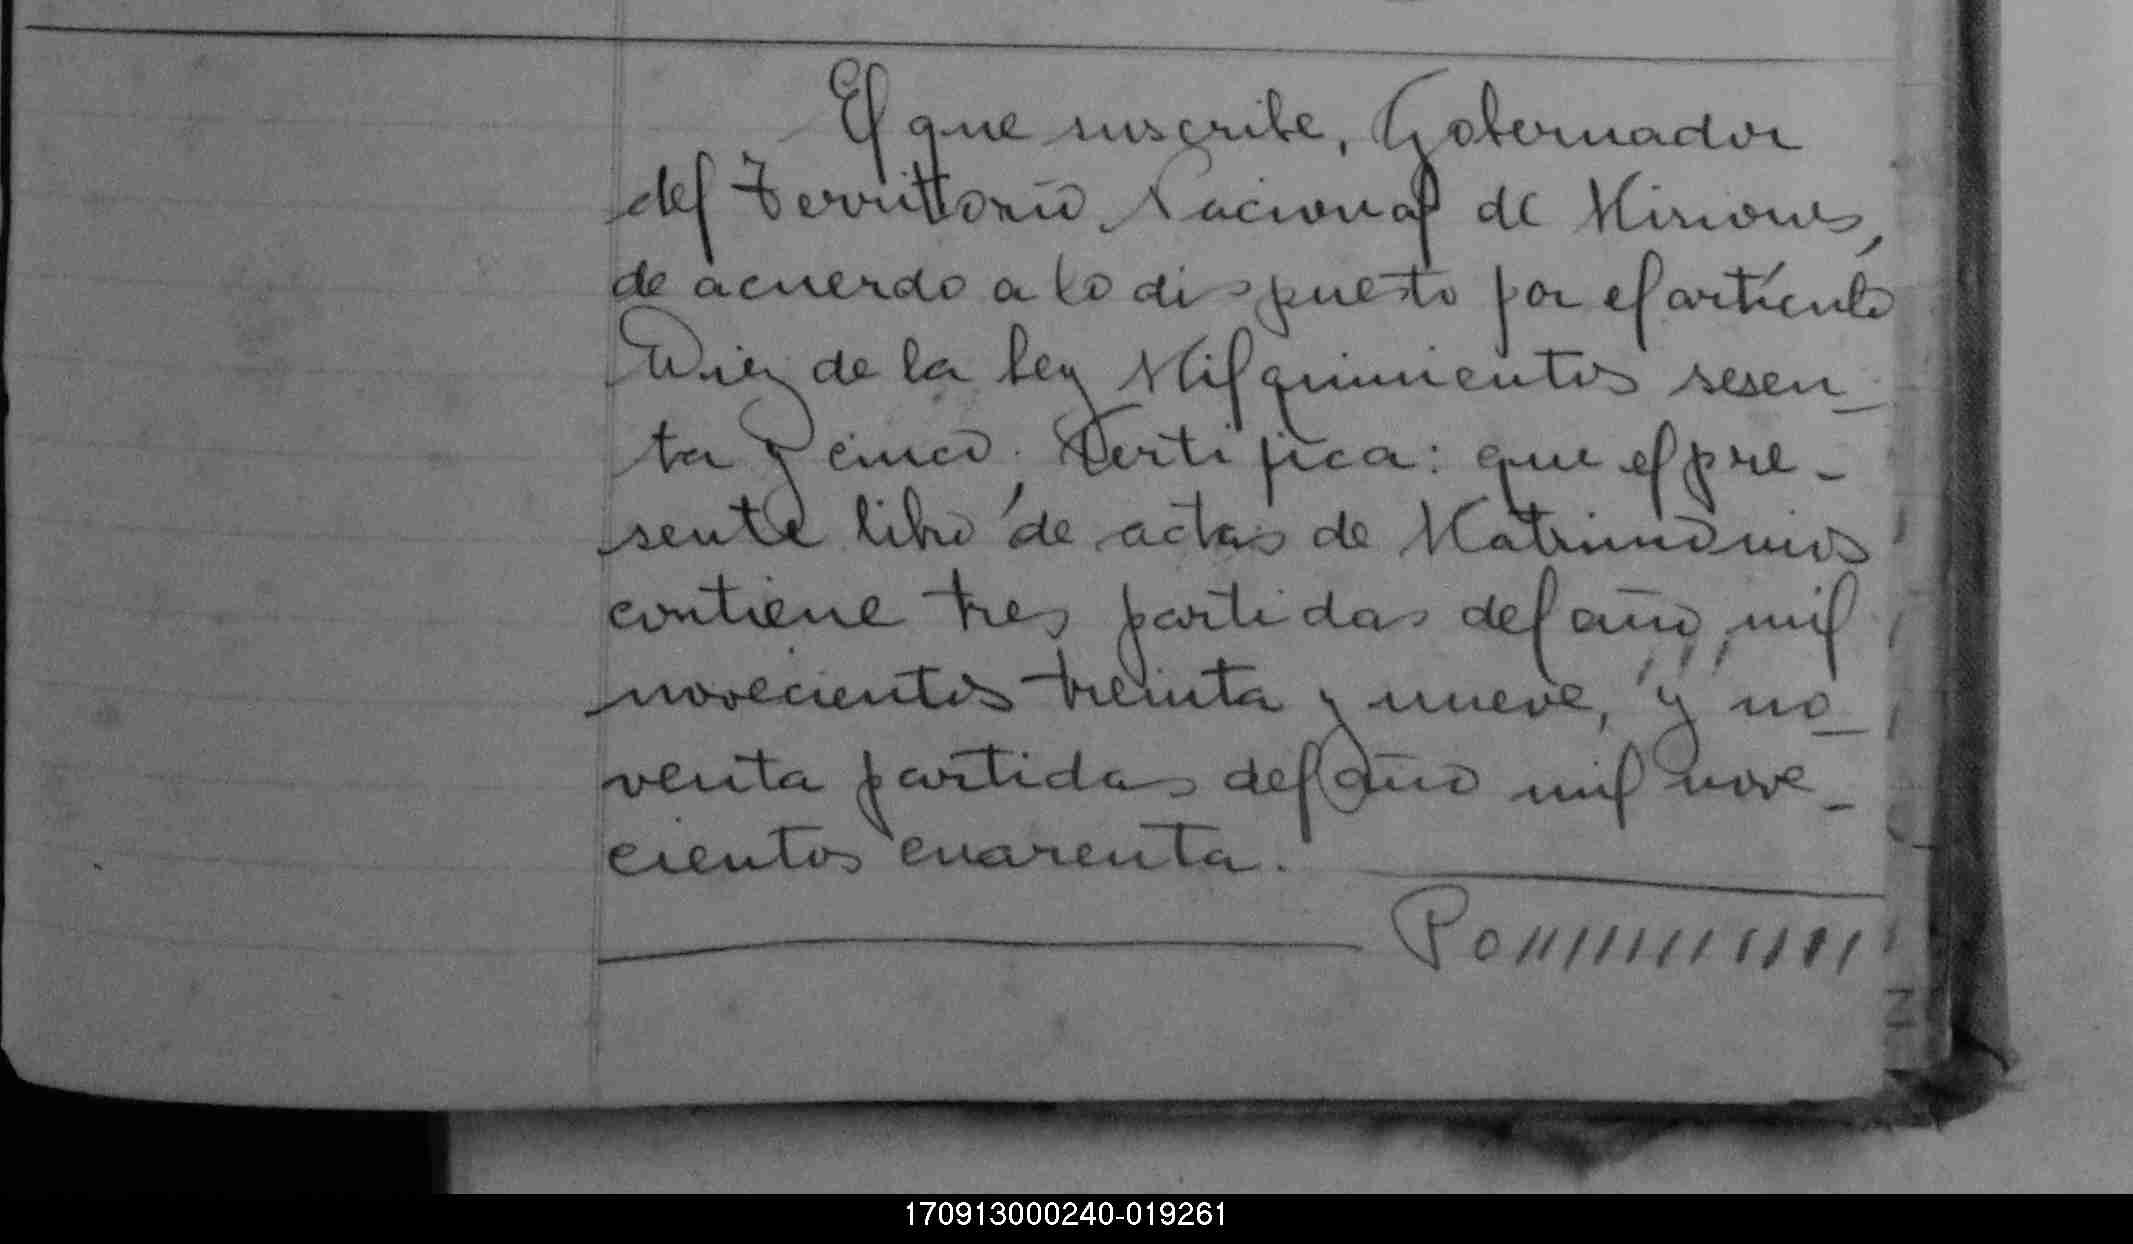 El que suscribe, Gobernador
del Territorio Nacional de Misiones,
de acuerdo a lo dispuesto por el artículo
Diez de la Ley Mil quinientos sesen_
ta y cinco, Certifica: que el pre-
sente libro de actas de Matrimonios
contiene tres partidas del año, mil
novecientos treinta y nueve, y no_
venta partidas del año mil nove_
cientos cuarenta.
Po//////////
170913000240-019261